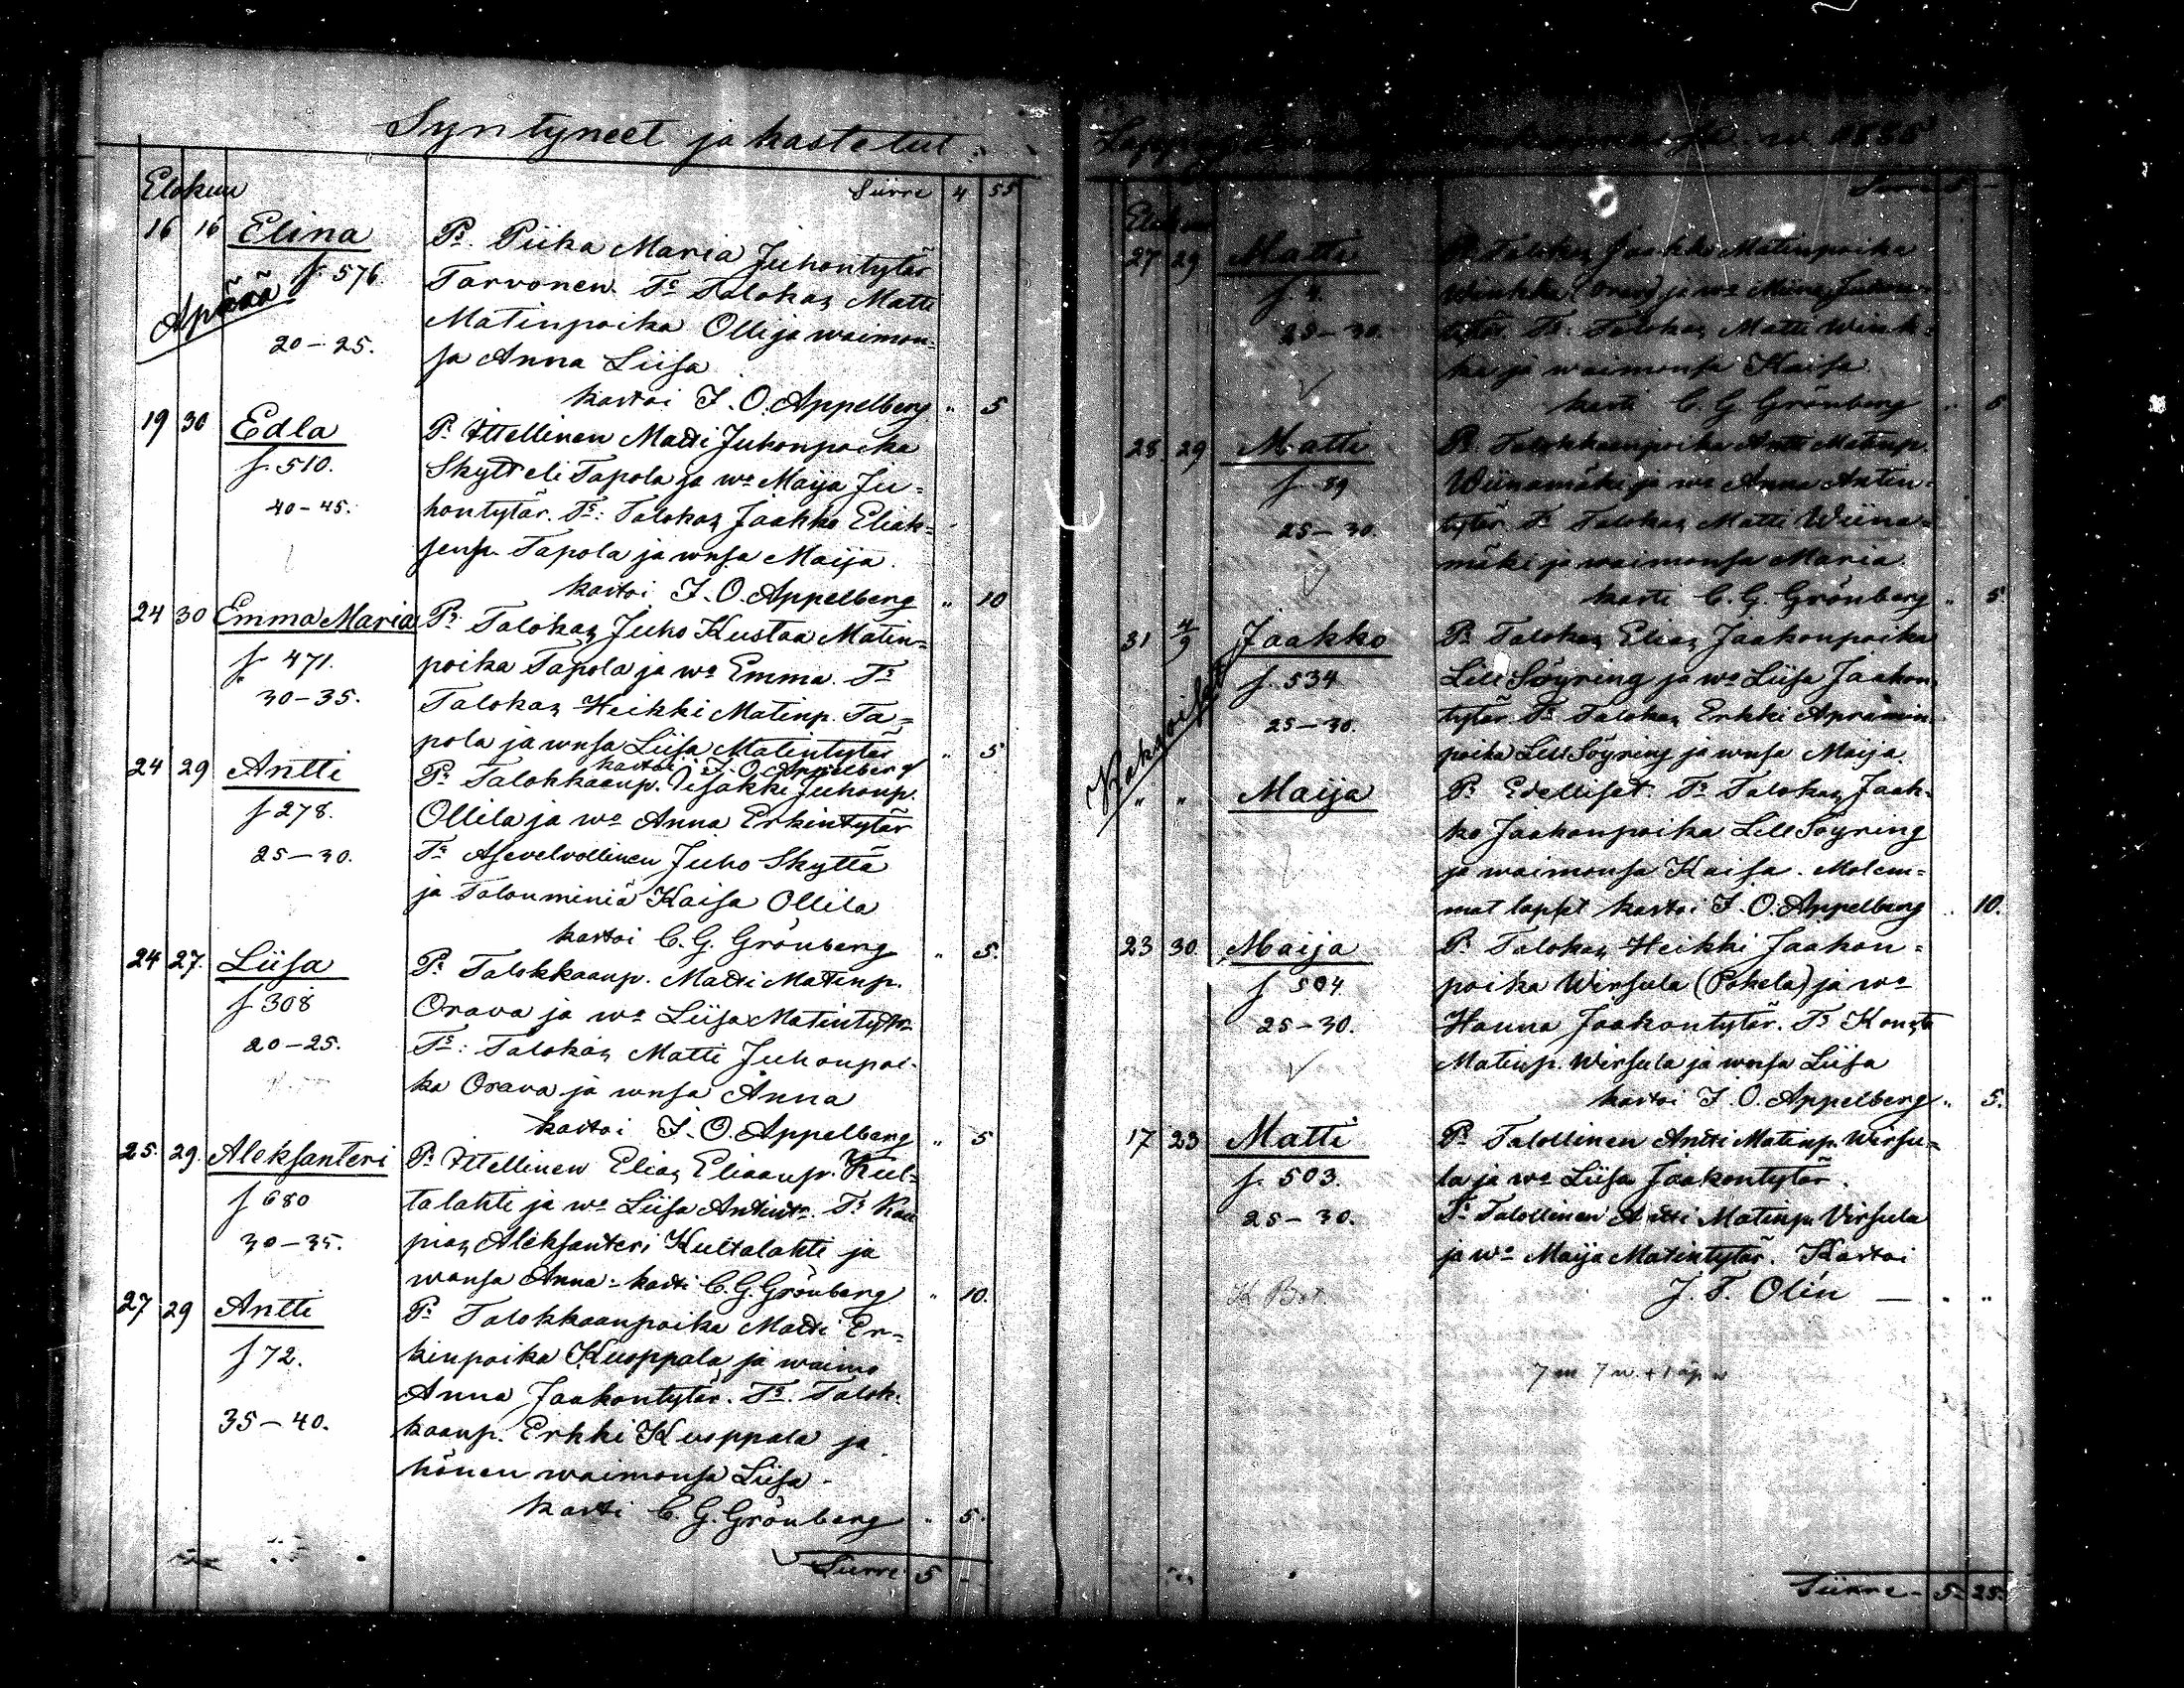 Syntyneet ja kastetut
Elokuu
Siirre 4 55
16 16 Elina
f 576.
Äpärä
20-25.
Ps. Piika Maria Juhontytär
Tarvonen. Ts Talokas Matti
Matinpoika Olli ja waimon=
sa Anna Liisa
kastoi J. O. Appelberg " 5
19 30 Edla
f. 510.
40-45.
Ps Ittellinen Matti Juhonpoika
Skytt eli Tapola ja wo Maija Ju=
hontytär. Ts: Talokas Jaakko Eliak=
senp. Tapola ja wnsa Maija.
kastoi J. O. Appelberg " 10
24 30 Emma Maria
f 471.
30-35.
Ps Talokas Juho Kustaa Matin=
poika Tapola ja wo Emma. Ts
Talokas Heikki Matinp. Ta=
pola ja wnsa Liisa Matintytär
kastoi J. O. Appelberg " 5
24 29 Antti
f 278.
25-30.
Ps Talokkaanp. Iisakki Juhonp.
Ollila ja wo Anna Erkintytär
Ts Asevelvollinen Juho Skyttä
ja Talonminiä Kaisa Ollila
kastoi C. G. Grönberg " 5.
24 27. Liisa
f 308
20-25.
Ps Talokkaanp. Matti Matinp.
Orava ja wo Liisa Matintytr.
Ts: Talokas Matti Juhonpoi-
ka Orava ja wnsa Anna
kastoi J. O. Appelberg " 5
25. 29. Aleksanteri
f 680
30-35.
Ps Ittellinen Elias Eliaanp. Kul=
talahti ja wo Liisa Antintr. Ts Kau
pias Aleksanteri Kultalahti ja
wonsa Anna - kasti C. G. Grönberg " 10.
27 29 Antti
f 72.
35-40.
Ps Talokkaanpoika Matti Er=
kinpoika Kuoppala ja waimo
Anna Jaakontytär. Ts. Talok.
kaanp. Erkki Kuoppala ja
hänen waimonsa Liisa.
kasti C. G. Grönberg " 5.
Siirre 5 -
Siirre 5 -
Elokuu
27 29 Matti
f. 4.
25-30.
Ps Talokas Jaakko Matinpoika
ja wo
Ts: Talokas Matti Wink=
ka ja waimonsa Kaisa.
kasti C. G. Grönberg " 5
28 29 Matti
f 59
25-30.
Ps Talokkaanpoika Antti Matinp.
Wiinamäki ja wo Anna Antin-
tytär. Ts Talokas Matti Wiina=
mäki ja waimonsa Maria.
kasti C. G. Grönberg " 5
31 4/9 Jaakko
f. 534
25-30.
Kaksoiset
Ps Talokas Elias Jaakonpoika
Lill Söyring ja wo Liisa Jaakon
tytär. Ts Talokas Erkki Apramin
poika Lill Söyring ja wnsa Maija.
" " Maija
Ps Edelliset. Ts Talokas Jaak=
ko Jaakonpoika Lill Söyring
ja waimonsa Kaisa. Molem=
mat lapset kastoi J. O. Appelberg . 10.
23 30. Maija
f 504
25-30.
Ps Talokas Heikki Jaakon=
poika Wirsula (Pokela) ja wo
Hanna Jaakontytär. Ts Konsta
Matinp. Wirsula ja wnsa Liisa
kastoi J. O. Appelberg " 5.
17 23 Matti
f. 503.
25-30.
Ps Talollinen Antti Matinp. Wirsu=
la ja wo Liisa Jaakontytär.
Ts Talollinen Matti Matinp. Virsula
ja wo Maija Matintytär. Kastoi
J. F. Olin — " "
7 m 7 w. + 1 äp w
Siirre - 5 25.